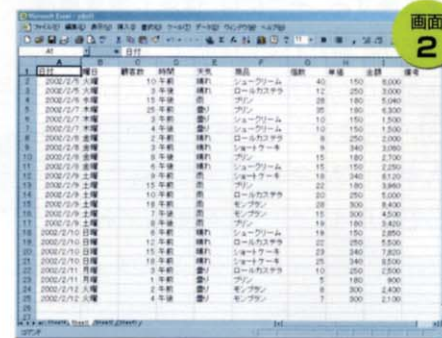 画面
2
Microsoft Excel
日付 曜日 顧客数 時間 天気 商品 個数 単価 金額 備考
2002/2/5 火曜 10 午前 晴れ シュークリーム 40 150 6,000
2002/2/5 火曜 3 午後 晴れ ロールカステラ 12 250 3,000
2002/2/6 水曜 15 午後 雨 プリン 28 180 5,040
2002/2/7 木曜 25 午前 曇り プリン 35 180 6,300
2002/2/7 木曜 3 午前 曇り シュークリーム 10 150 1,500
2002/2/7 木曜 4 午後 曇り シュークリーム 10 150 1,500
2002/2/8 金曜 2 午前 晴れ ロールカステラ 8 250 2,000
2002/2/8 金曜 3 午前 晴れ ショートケーキ 9 340 3,060
2002/2/8 金曜 8 午後 晴れ プリン 15 180 2,700
2002/2/8 金曜 6 午後 晴れ シュークリーム 15 150 2,250
2002/2/9 土曜 9 午前 雨 ショートケーキ 18 340 6,120
2002/2/9 土曜 15 午前 雨 プリン 22 180 3,960
2002/2/9 土曜 10 午前 雨 ロールカステラ 20 250 5,000
2002/2/9 土曜 18 午前 雨 モンブラン 28 300 8,400
2002/2/9 土曜 7 午後 雨 モンブラン 15 300 4,500
2002/2/9 土曜 8 午後 雨 プリン 19 180 3,420
2002/2/10 日曜 6 午前 晴れ シュークリーム 19 150 2,850
2002/2/10 日曜 12 午前 晴れ ロールカステラ 22 250 5,500
2002/2/10 日曜 15 午後 晴れ ショートケーキ 23 340 7,820
2002/2/10 日曜 18 午前 晴れ ショートケーキ 25 340 8,500
2002/2/11 月曜 3 午前 曇り ロールカステラ 10 250 2,500
2002/2/11 月曜 1 午前 曇り プリン 5 180 900
2002/2/12 火曜 2 午前 曇り モンブラン 8 300 2,400
2002/2/12 火曜 4 午後 曇り モンブラン 7 300 2,100
コマンド